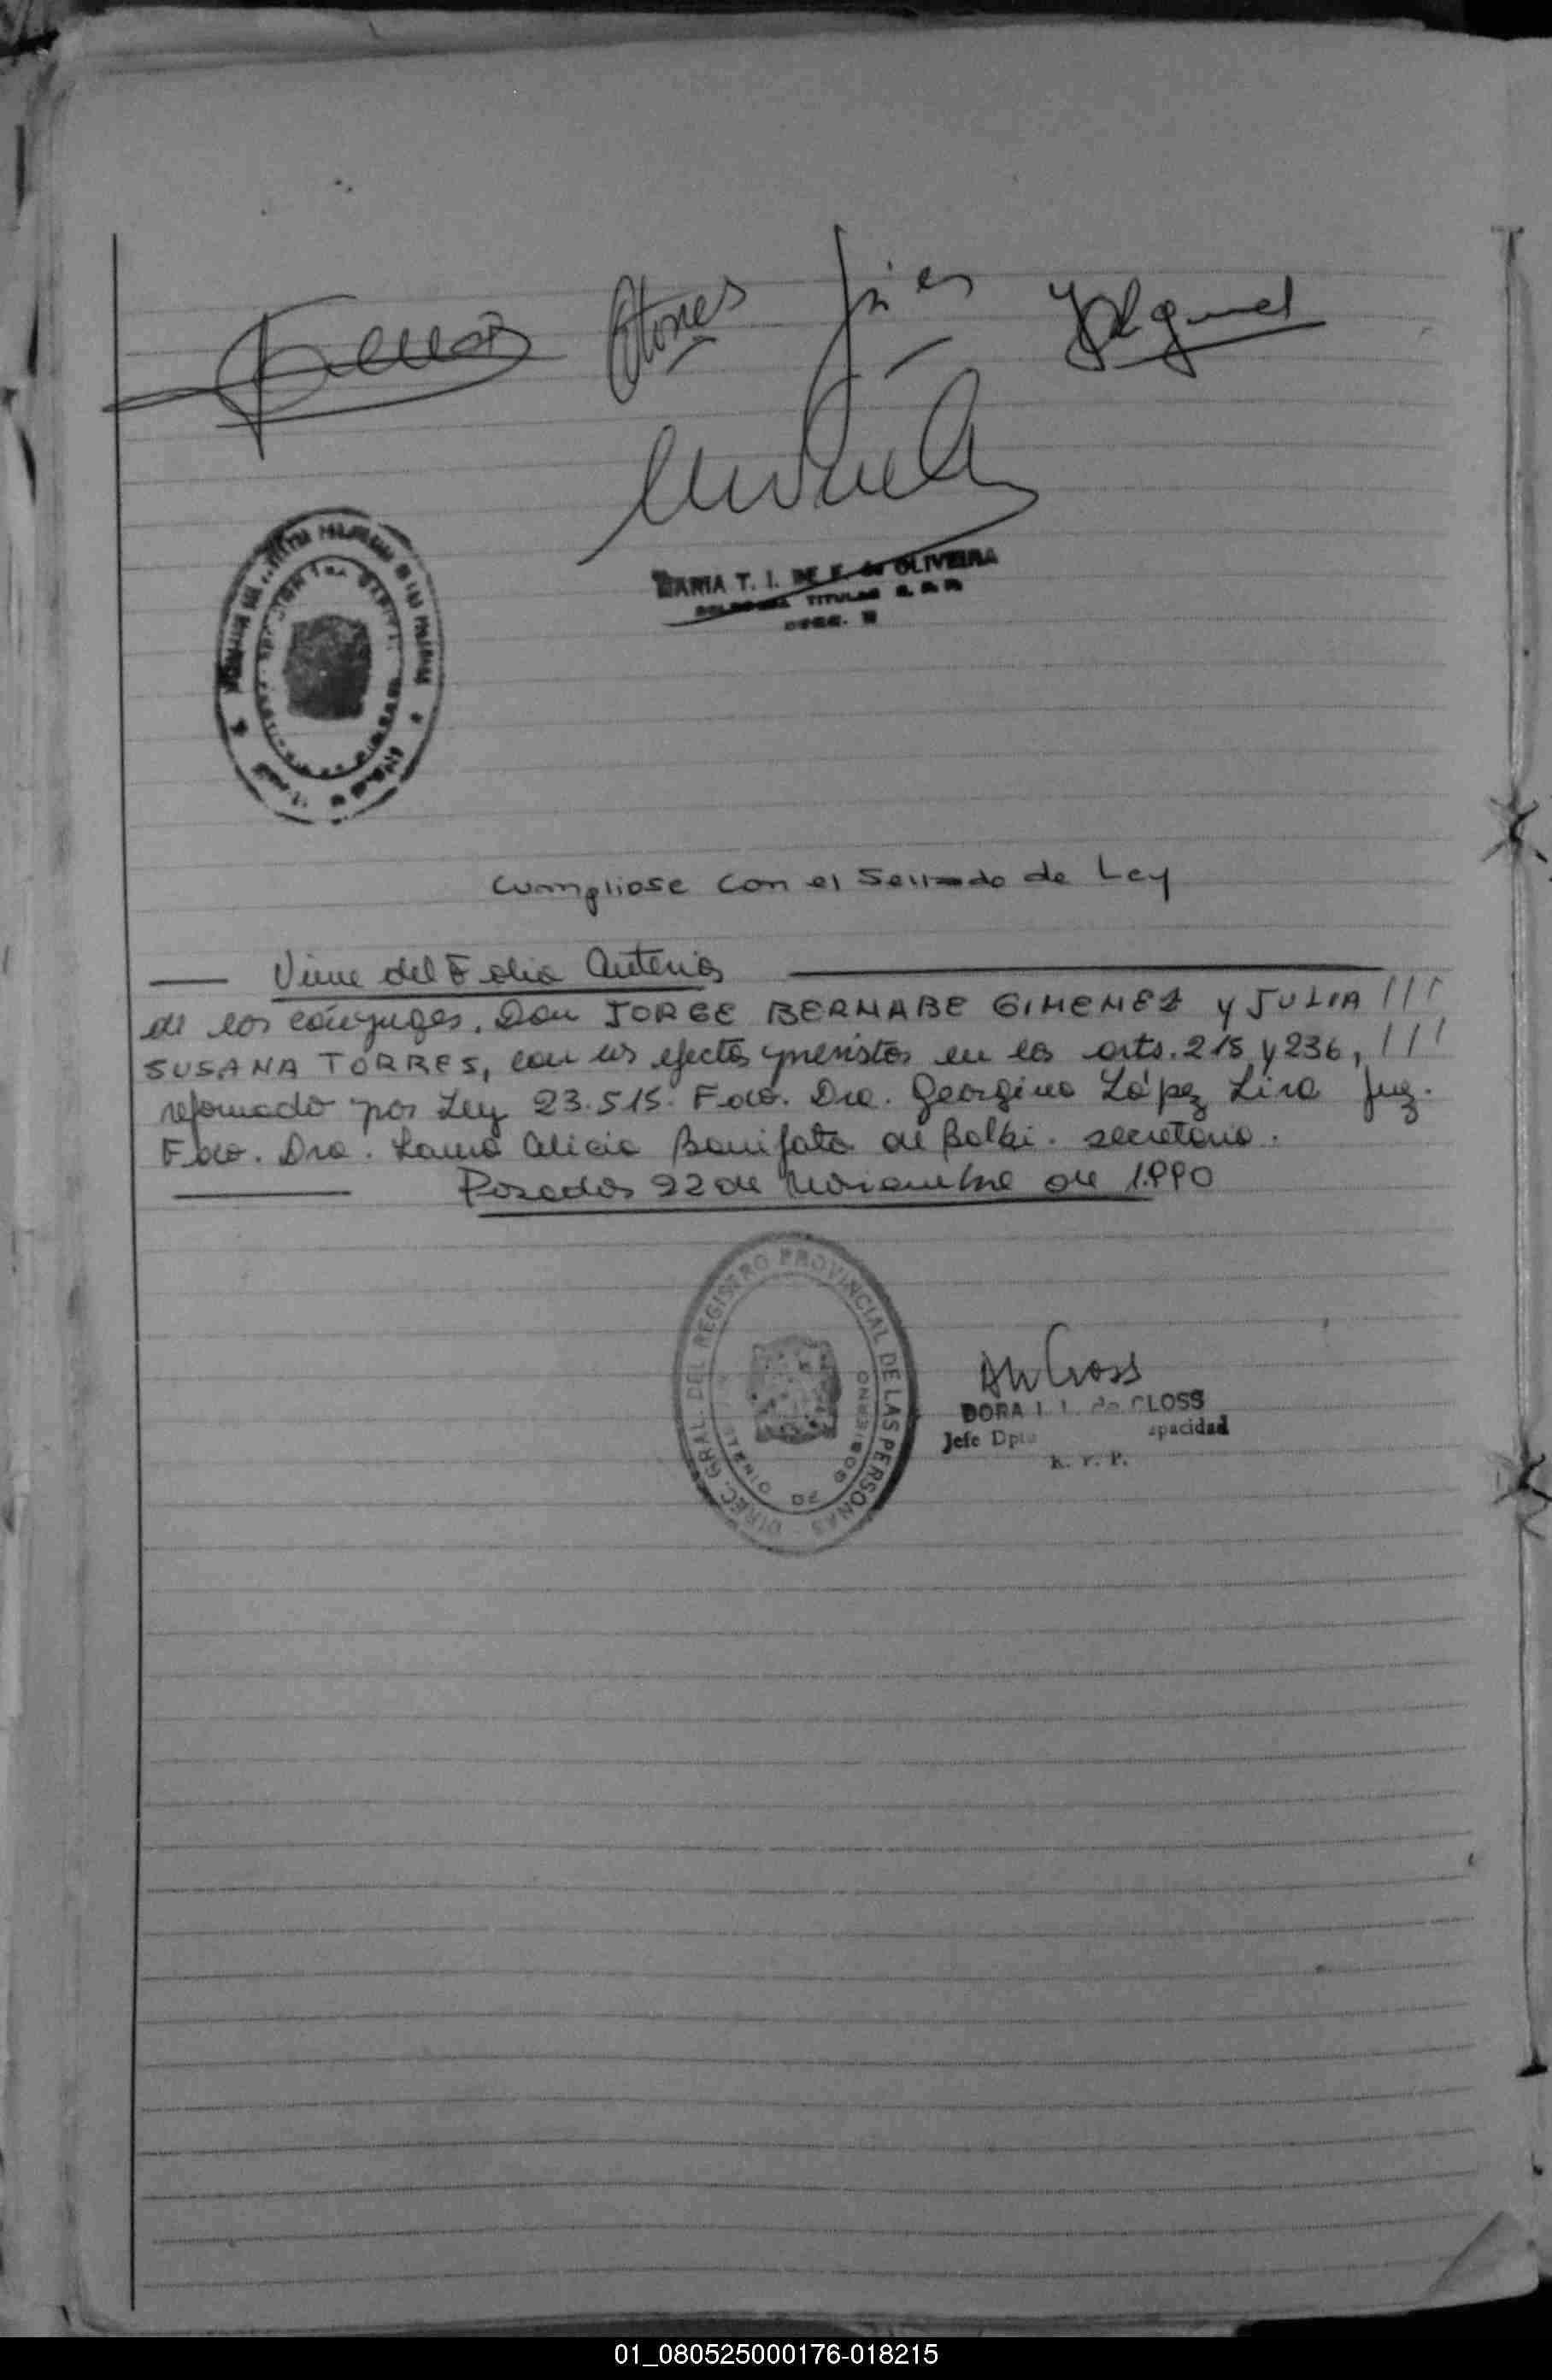 Torres
MARIA T. I. DE F. de OLIVEIRA
TITULAR
Cumpliose con el Sellado de Ley
Viene del Folio Anterior
de los cónyuges, Don JORGE BERNABE GIMENEZ y JULIA ///
SUSANA TORRES, con los efectos previstos en los arts. 215 y 236, ///
reformado por Ley 23.515. Fdo. Dra. Georgina López Lira Juez.
Fdo. Dra. Laura Alicia Bonifato de Balbi. secretaria.
Posadas 22 de Noviembre de 1.990
DIREC. GRAL. DEL REGISTRO PROVINCIAL DE LAS PERSONAS
GOBIERNO
DORA de CLOSS
Jefe Dpto apacidad
R. P. P.
01_080525000176-018215